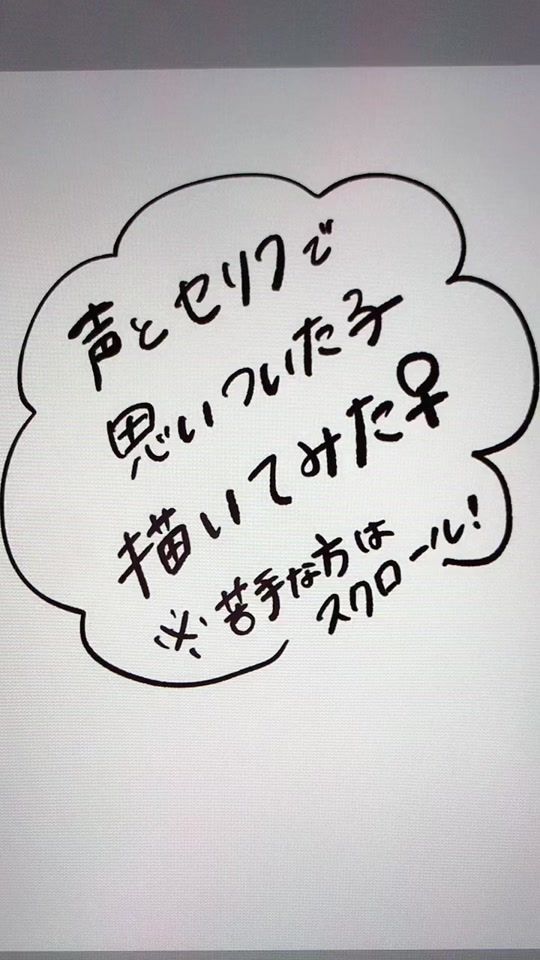 声とセリフで
思いついた子
描いてみた♀
※苦手な方は
スクロール!